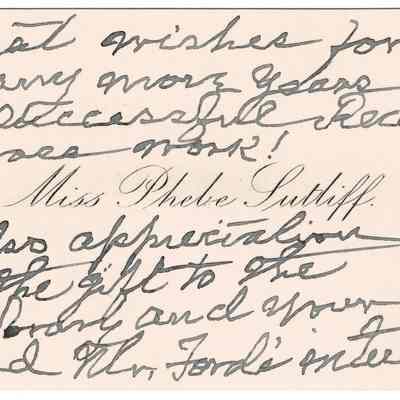 at wishes for
any more years
successful Rec
work!
Miss Phebe Sutliff.
so appreciation
the gift to the
brary and your
d Mr. Ford's inte